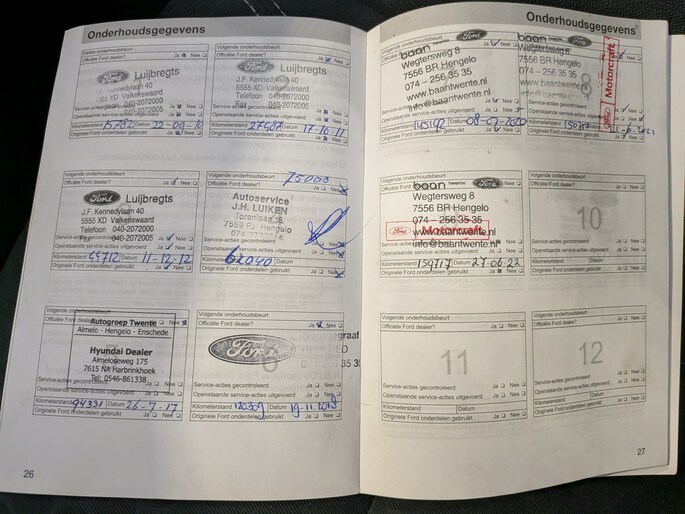 Onderhoudsgegevens
Eerste onderhoudsbeurt
Officiële Ford dealer? Ja Nee
Ford Luijbregts
Kennedylaan 40
XD Valkenswaard
040-2072000
040-2072005
Service-acties gecontroleerd Ja Nee
Openstaande service-acties uitgevoerd Ja Nee
Kilometerstand 15782 Datum 22-09-10
Originele Ford onderdelen gebruikt Ja Nee
Volgende onderhoudsbeurt
Officiële Ford dealer? Ja Nee
Ford Luijbregts
J.F. Kennedylaan 40
5555 XD Valkenswaard
Telefoon 040-2072000
Fax 040-2072005
Service-acties gecontroleerd Ja Nee
Openstaande service-acties uitgevoerd Ja Nee
Kilometerstand Datum 17-10-11
Originele Ford onderdelen gebruikt Ja Nee
Volgende onderhoudsbeurt
Officiële Ford dealer? Ja Nee
Ford Luijbregts
J.F. Kennedylaan 40
5555 XD Valkenswaard
Telefoon 040-2072000
040-2072005
Service-acties gecontroleerd Ja Nee
Openstaande service-acties uitgevoerd Ja Nee
Kilometerstand Datum 11-12-12
Originele Ford onderdelen gebruikt Ja Nee
Volgende onderhoudsbeurt 75000
Officiële Ford dealer? Ja Nee
Autoservice
J.H. LUIKEN
Torenlaan
7559 PJ Hengelo
Service-acties gecontroleerd Ja Nee
Openstaande service-acties uitgevoerd Ja Nee
Kilometerstand 62040 Datum
Originele Ford onderdelen gebruikt Ja Nee
Volgende onderhoudsbeurt
Officiële Ford dealer? Ja Nee
Autogroep Twente
Almelo - Hengelo - Enschede
Hyundai Dealer
Almeloseweg 175
7615 NA Harbrinkhoek
Tel: 0546-861338
Service-acties gecontroleerd Ja Nee
Openstaande service-acties uitgevoerd Ja Nee
Kilometerstand 94331 Datum 26-7-17
Originele Ford onderdelen gebruikt Ja Nee
Volgende onderhoudsbeurt
Officiële Ford dealer? Ja Nee
Ford
6
Service-acties gecontroleerd Ja Nee
Openstaande service-acties uitgevoerd Ja Nee
Kilometerstand 120309 Datum
Originele Ford onderdelen gebruikt Ja Nee
26
Onderhoudsgegevens
Volgende onderhoudsbeurt
Officiële Ford dealer? Ja Nee
baan Ford
Wegtersweg 8
7556 BR Hengelo
074 – 256 35 35
www.baantwente.nl
info@baantwente.nl
Service-acties gecontroleerd Ja Nee
Openstaande service-acties uitgevoerd Ja Nee
Kilometerstand 145192 Datum 08-07-2020
Originele Ford onderdelen gebruikt Ja Nee
Volgende onderhoudsbeurt
baan Ford
Wegtersweg 8
7556 BR Hengelo
074 – 256 35 35
www.baantwente.nl
info@baantwente.nl
8
Ford Motorcraft
Service-acties gecontroleerd
Openstaande service-acties uitgevoerd
Kilometerstand Datum
Originele Ford onderdelen gebruikt Ja Nee
Volgende onderhoudsbeurt
Officiële Ford dealer? Ja Nee
baan twente Ford
Wegtersweg 8
7556 BR Hengelo
074 – 256 35 35
Ford Motorcraft
www.baantwente.nl
info@baantwente.nl
Openstaande service-acties uitgevoerd Ja Nee
Kilometerstand 159717 Datum 27-06-22
Originele Ford onderdelen gebruikt Ja Nee
Volgende onderhoudsbeurt
Officiële Ford dealer? Ja Nee
10
Service-acties gecontroleerd Ja Nee
Openstaande service-acties uitgevoerd Ja Nee
Kilometerstand Datum
Originele Ford onderdelen gebruikt Ja Nee
Volgende onderhoudsbeurt
Officiële Ford dealer? Ja Nee
11
Service-acties gecontroleerd Ja Nee
Openstaande service-acties uitgevoerd Ja Nee
Kilometerstand Datum
Originele Ford onderdelen gebruikt Ja Nee
Volgende onderhoudsbeurt
Officiële Ford dealer? Ja Nee
12
Service-acties gecontroleerd Ja Nee
Openstaande service-acties uitgevoerd Ja Nee
Kilometerstand Datum
Originele Ford onderdelen gebruikt Ja Nee
27